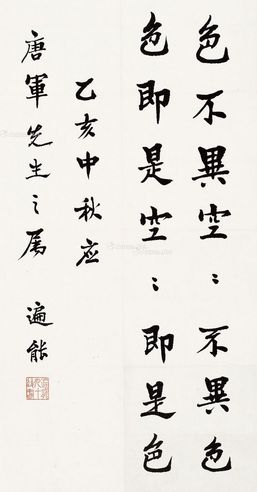 色不異空〻不異色
色即是空〻即是色
乙亥中秋应
唐軍先生之属 遍能